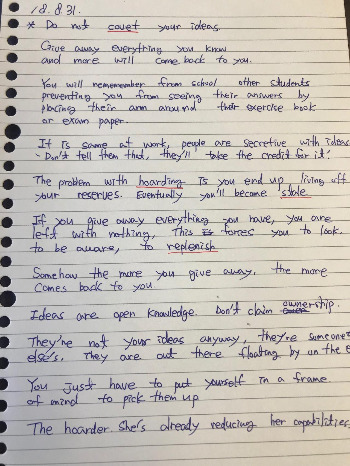 18.8.31.
* Do not covet your ideas.
Give away everything you know
and more will come back to you.
You will remember from school other students
preventing you from seeing their answers by
placing their arm around their exercise book
or exam paper.
It is same at work, people are secretive with ideas
- Don't tell them that, they'll take the credit for it!
The problem with hoarding is you end up living off
your reserves. Eventually you'll become stale
If you give away everything you have, you are
left with nothing, This forces you to look.
to be aware, to replenish
Somehow the more you give away, the more
comes back to you.
Ideas are open knowledge. Don't claim ownership.
They're not your ideas anyway, they're someone
else's. They are out there floating by on the
You just have to put yourself in a frame
of mind to pick them up
The hoarder. She's already reducing her capabilities